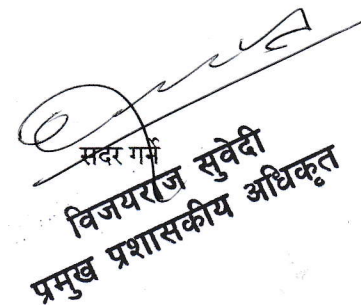 सदर गर्ने
विजयराज सुवेदी
प्रमुख प्रशासकीय अधिकृत